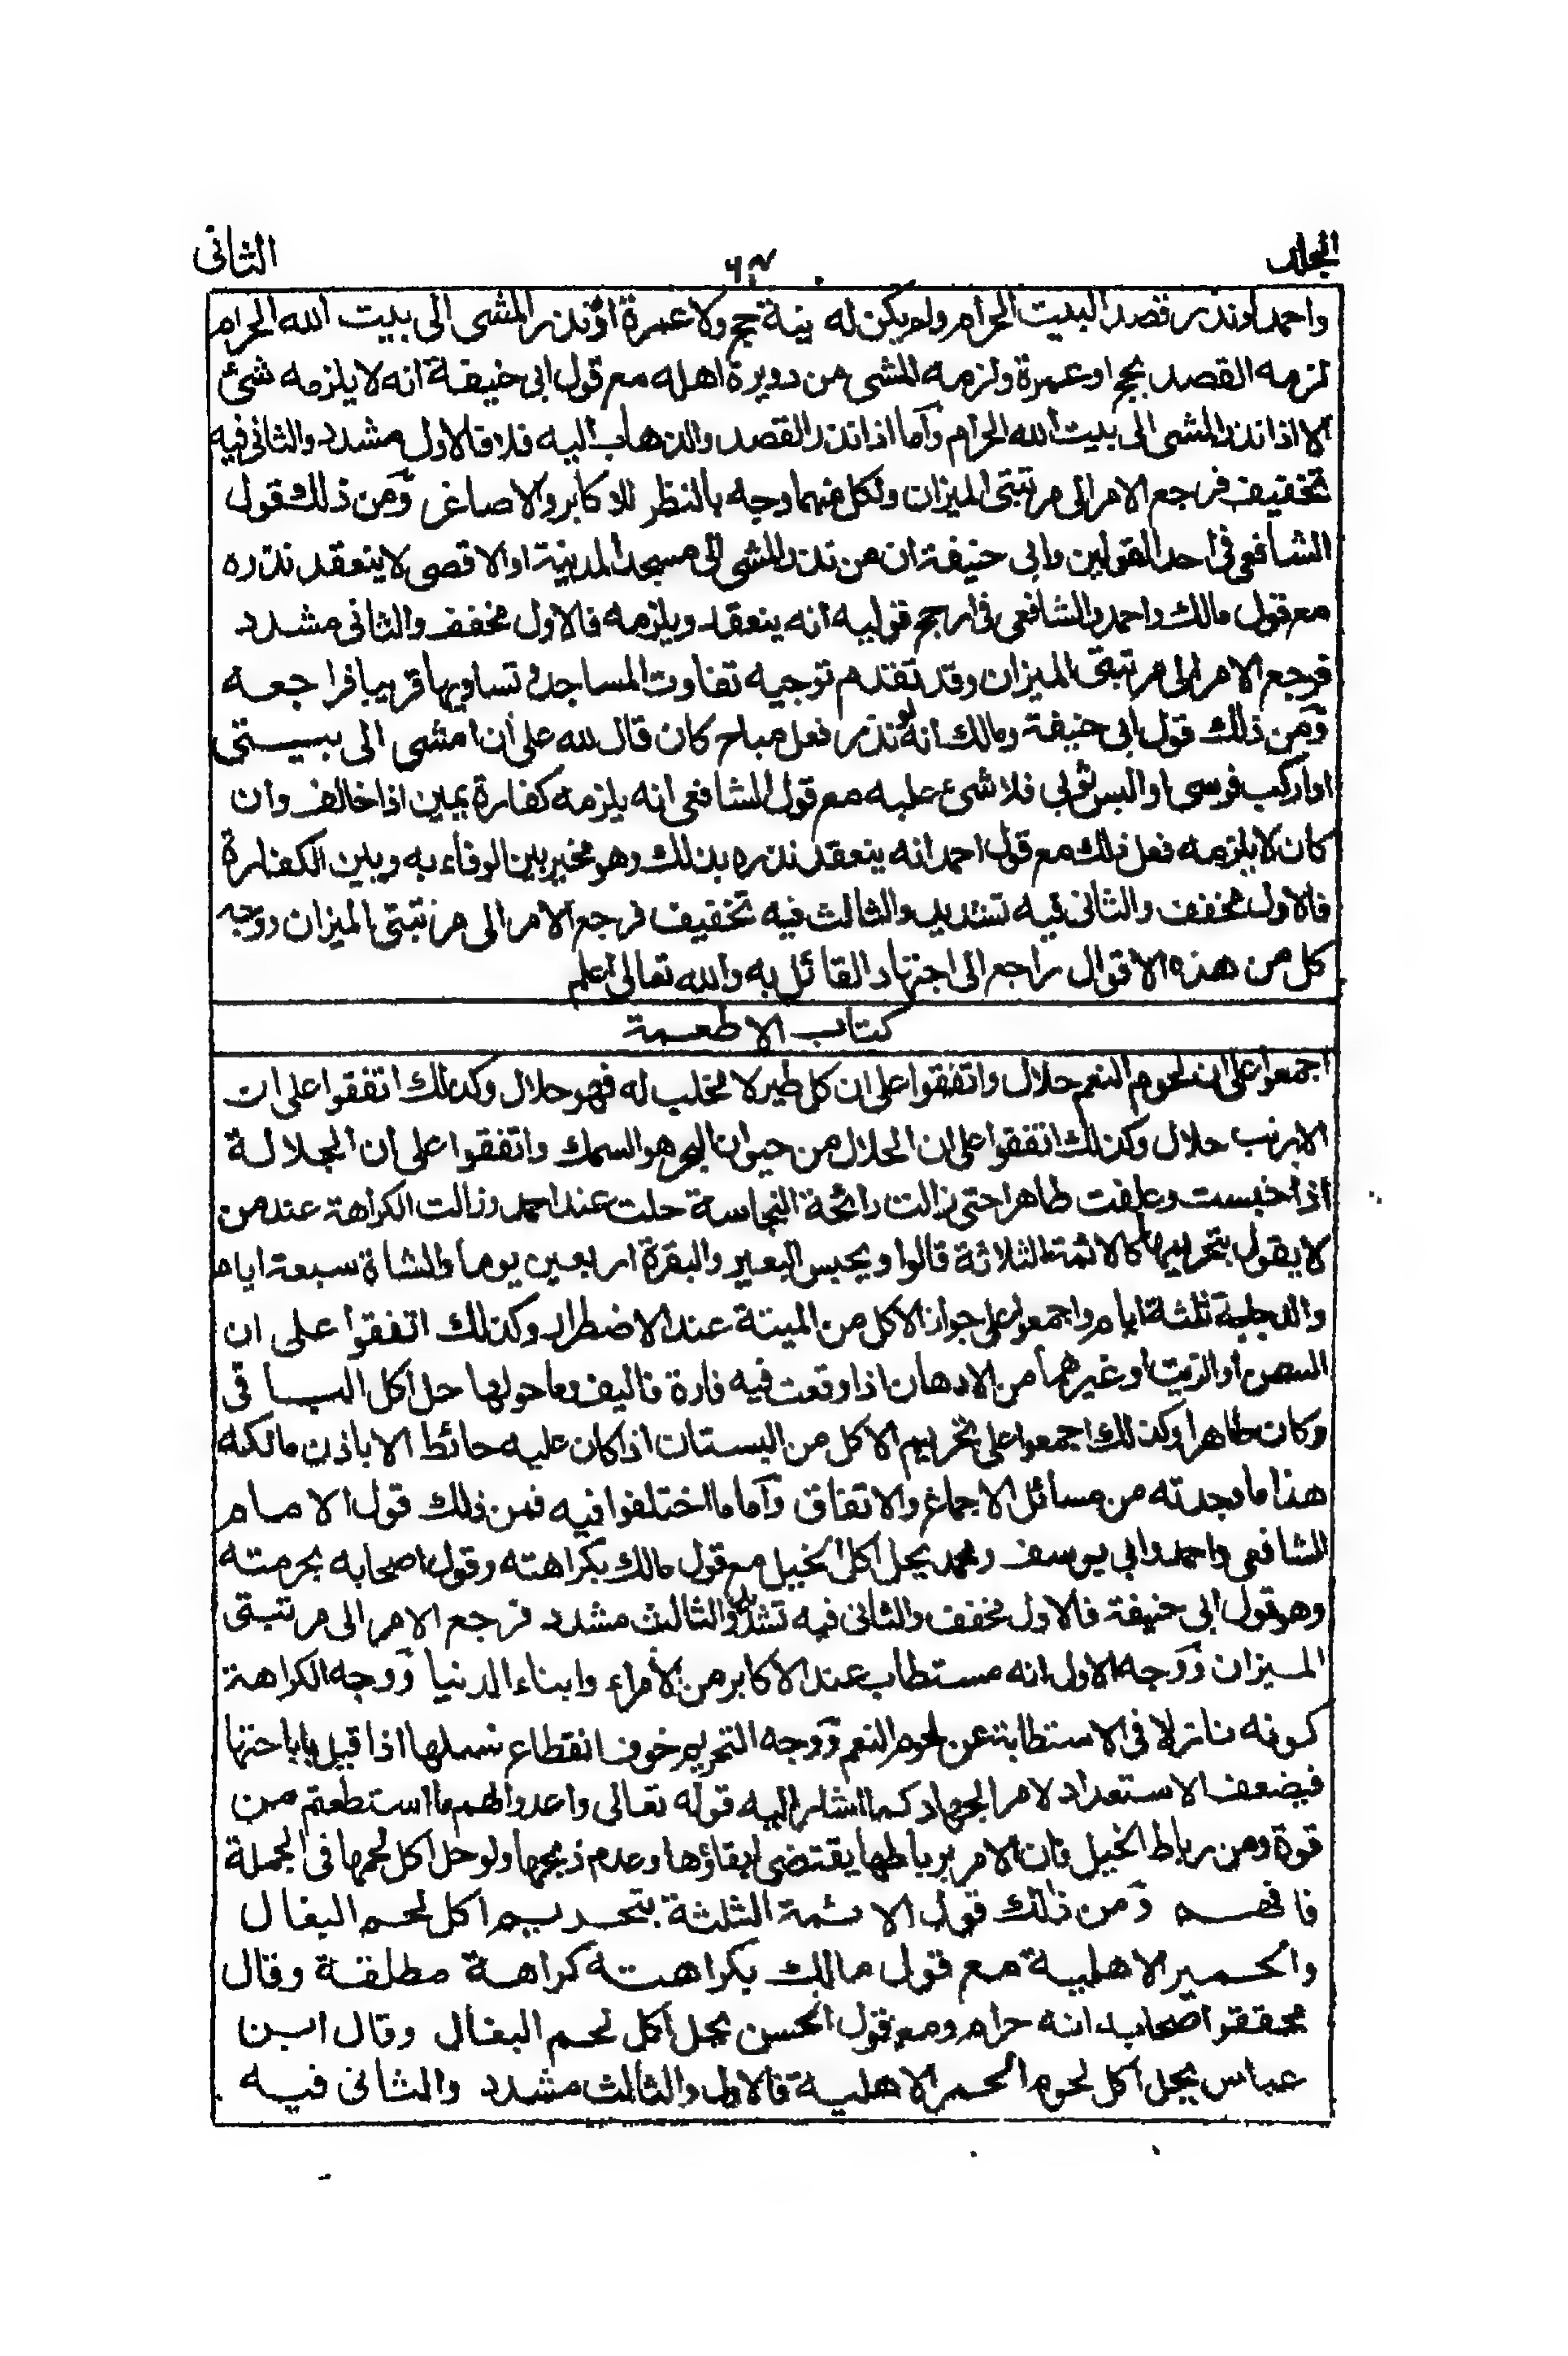 المجلد
٦٤
الثانى
واحمد لو نذر قصد البيت الحرام ولم يكن له نية حج ولا عمرة او نذر المشى الى بيت الله الحرام
لزمه القصد بحج او عمرة ولزمه المشى من دويرة اهله مع قول ابى حنيفة انه لا يلزمه شئ
الا اذا نذر المشى الى بيت الله الحرام وأما اذا نذر القصد والذهاب اليه فلا فالاول مشدد والثانى فيه
تخفيف فرجع الامر الى مرتبتى الميزان ولكل منهما وجه بالنظر للاكابر والاصاغر ومن ذلك قول
الشافعى فى احد القولين وابى حنيفة ان من نذر المشى الى مسجد المدينة او الاقصى لا ينعقد نذره
مع قول مالك واحمد والشافعى فى ارجح قوليه انه ينعقد ويلزمه فالاول مخفف والثانى مشدد
فرجع الامر الى مرتبتى الميزان وقد تقدم توجيه تفاوت المساجد وتساويها قريبا فراجعه
ومن ذلك قول ابى حنيفة ومالك انه لو نذر فعل مباح كان قال لله على أن امشى الى بيتى
او أركب فرسى او البس ثوبى فلا شئ عليه مع قول الشافعى انه يلزمه كفارة يمين اذا خالف وان
كان لا يلزمه فعل ذلك مع قول احمد انه ينعقد نذره بذلك وهو مخير بين الوفاء به وبين الكفارة
فالاول مخفف والثانى فيه تشديد والثالث فيه تخفيف فرجع الامر الى مرتبتى الميزان ووجه
كل من هذه الاقوال راجع الى اجتهاد القائل به والله تعالى اعلم
كتاب الاطعمة
اجمعوا على ان لحوم النعم حلال واتفقوا على ان كل طير لا مخلب له فهو حلال وكذلك اتفقوا على ان
الارنب حلال وكذلك اتفقوا على ان الحلال من حيوان البحر هو السمك واتفقوا على ان الجلالة
اذا حبست وعلفت طاهرا حتى زالت رائحة النجاسة حلت عند احمد وزالت الكراهة عند من
لا يقول بتحريمها كالائمة الثلاثة قالوا ويحبس البعير والبقرة اربعين يوما والشاة سبعة ايام
والدجاجة ثلثة ايام واجمعوا على جواز الاكل من الميتة عند الاضطرار وكذلك اتفقوا على ان
السمن او الزيت او غيرهما من الادهان اذا وقعت فيه فارة فاليف وما حولها حل اكل الباقى
وكان طاهرا وكذلك اجمعوا على تحريم الاكل من البستان اذا كان عليه حائط الا باذن مالكه
هذا ما وجدته من مسائل الاجماع والاتفاق وأما ما اختلفوا فيه فمن ذلك قول الامام
الشافعى واحمد وابى يوسف ومحمد يحل اكل الخيل مع قول مالك بكراهته وقول اصحابه بحرمته
وهو قول ابى حنيفة فالاول مخفف والثانى فيه تشديد والثالث مشدد فرجع الامر الى مرتبتى
الميزان ووجه الاول انه مستطاب عند الاكابر من الأمراء وابناء الدنيا ووجه الكراهة
كونه نازلا فى الاستطابة عن لحوم النعم ووجه التحريم خوف انقطاع نسلها اذا قيل باباحتها
فيضعف الاستعداد لامر الجهاد كما اشار اليه قوله تعالى واعدوا لهم ما استطعتم من
قوة ومن رباط الخيل فان الامر برباطها يقتضى ابقاؤها وعدم ذبحها ولو حل اكل لحمها فى الجملة
فافهم ومن ذلك قول الائمة الثلثة بتحريم اكل لحم البغال
والحمير الاهلية مع قول مالك بكراهته كراهة مطلقة وقال
محققوا اصحابه انه حرام ومع قول الحسن يحل اكل لحم البغال وقال ابن
عباس يحل اكل لحوم الحمر الاهلية فالاول والثالث مشدد والثانى فيه